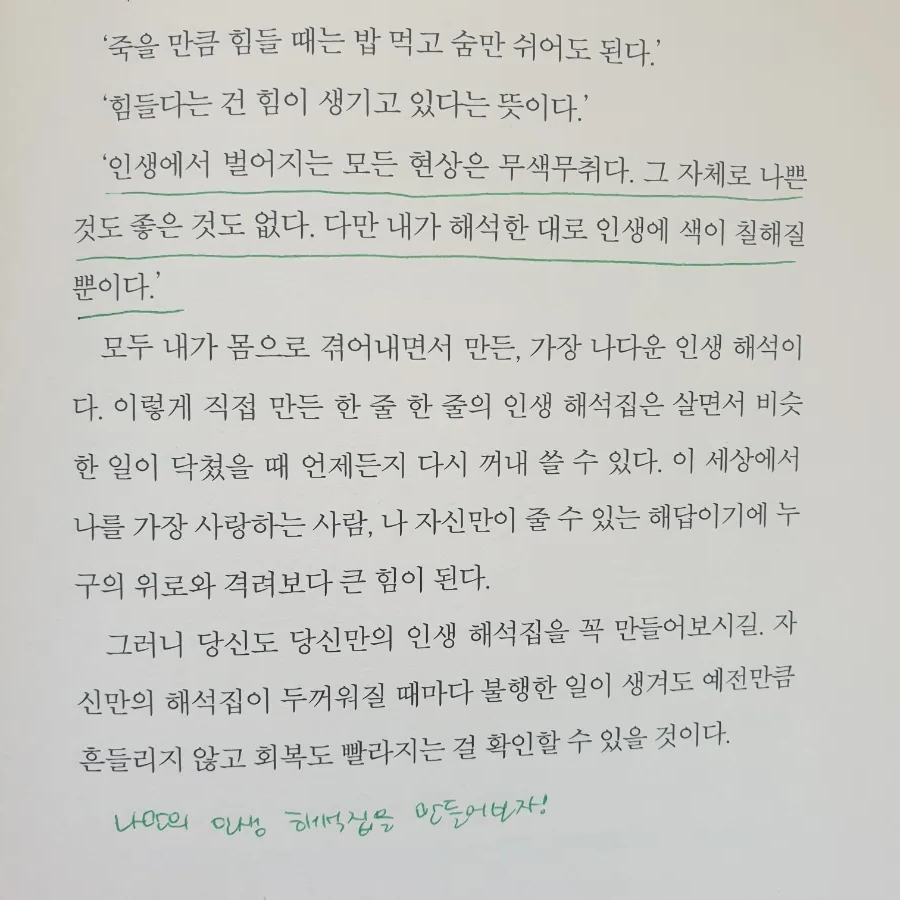 ‘죽을 만큼 힘들 때는 밥 먹고 숨만 쉬어도 된다.’
‘힘들다는 건 힘이 생기고 있다는 뜻이다.’
‘인생에서 벌어지는 모든 현상은 무색무취다. 그 자체로 나쁜
것도 좋은 것도 없다. 다만 내가 해석한 대로 인생에 색이 칠해질
뿐이다.’
모두 내가 몸으로 겪어내면서 만든, 가장 나다운 인생 해석이
다. 이렇게 직접 만든 한 줄 한 줄의 인생 해석집은 살면서 비슷
한 일이 닥쳤을 때 언제든지 다시 꺼내 쓸 수 있다. 이 세상에서
나를 가장 사랑하는 사람, 나 자신만이 줄 수 있는 해답이기에 누
구의 위로와 격려보다 큰 힘이 된다.
그러니 당신도 당신만의 인생 해석집을 꼭 만들어보시길. 자
신만의 해석집이 두꺼워질 때마다 불행한 일이 생겨도 예전만큼
흔들리지 않고 회복도 빨라지는 걸 확인할 수 있을 것이다.
나만의 인생 해석집을 만들어보자!